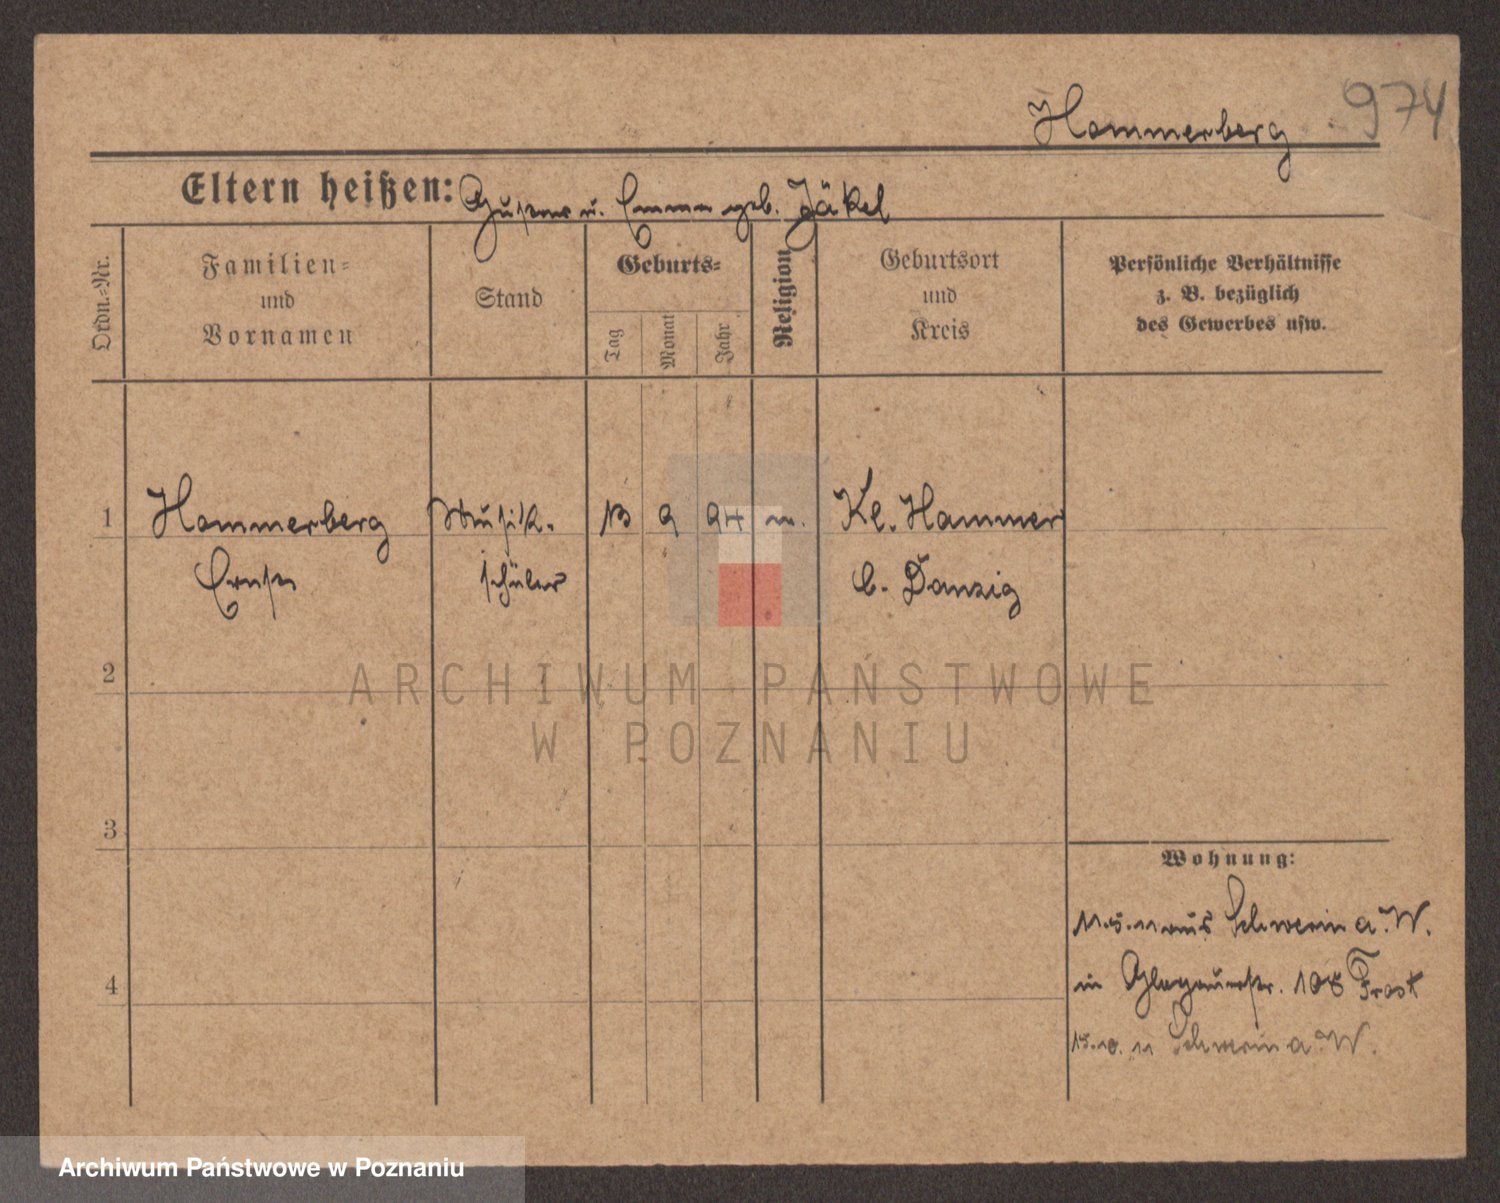 Hammerberg 974
Eltern heißen: Gustav u. Emma geb. Jäkel
Ordn.-Nr.
Familien-
und
Vornamen
Stand
Geburts-
Tag
Monat
Jahr
Religion
Geburtsort
und
Kreis
Persönliche Verhältnisse
z. B. bezüglich
des Gewerbes usw.
1 Hammerberg Musik- 13 9 94 m. Kl. Hammer
Ernst schüler b. Danzig
2
3
4
Wohnung:
11.5.11 aus Schwerin a. W.
in Glogauerstr. 108 Frost
15.10.11 Schwerin a. W.
ARCHIWUM PAŃSTWOWE
W POZNANIU
Archiwum Państwowe w Poznaniu